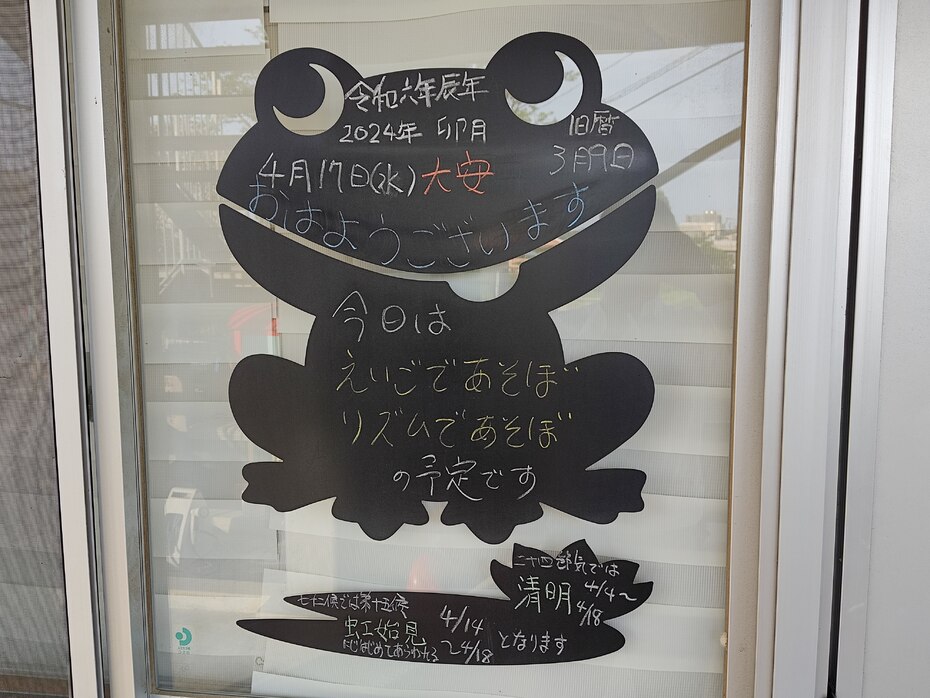 令和六年辰年
2024年 卯月
旧暦
3月9日
4月17日(水)大安
おはようございます
今日は
えいごであそぼ
リズムであそぼ
の予定です
二十四節気では
清明 4/4～
4/18
七十二候では第十五候
虹始見 4/14
にじはじめてあらわれる ～4/18 となります